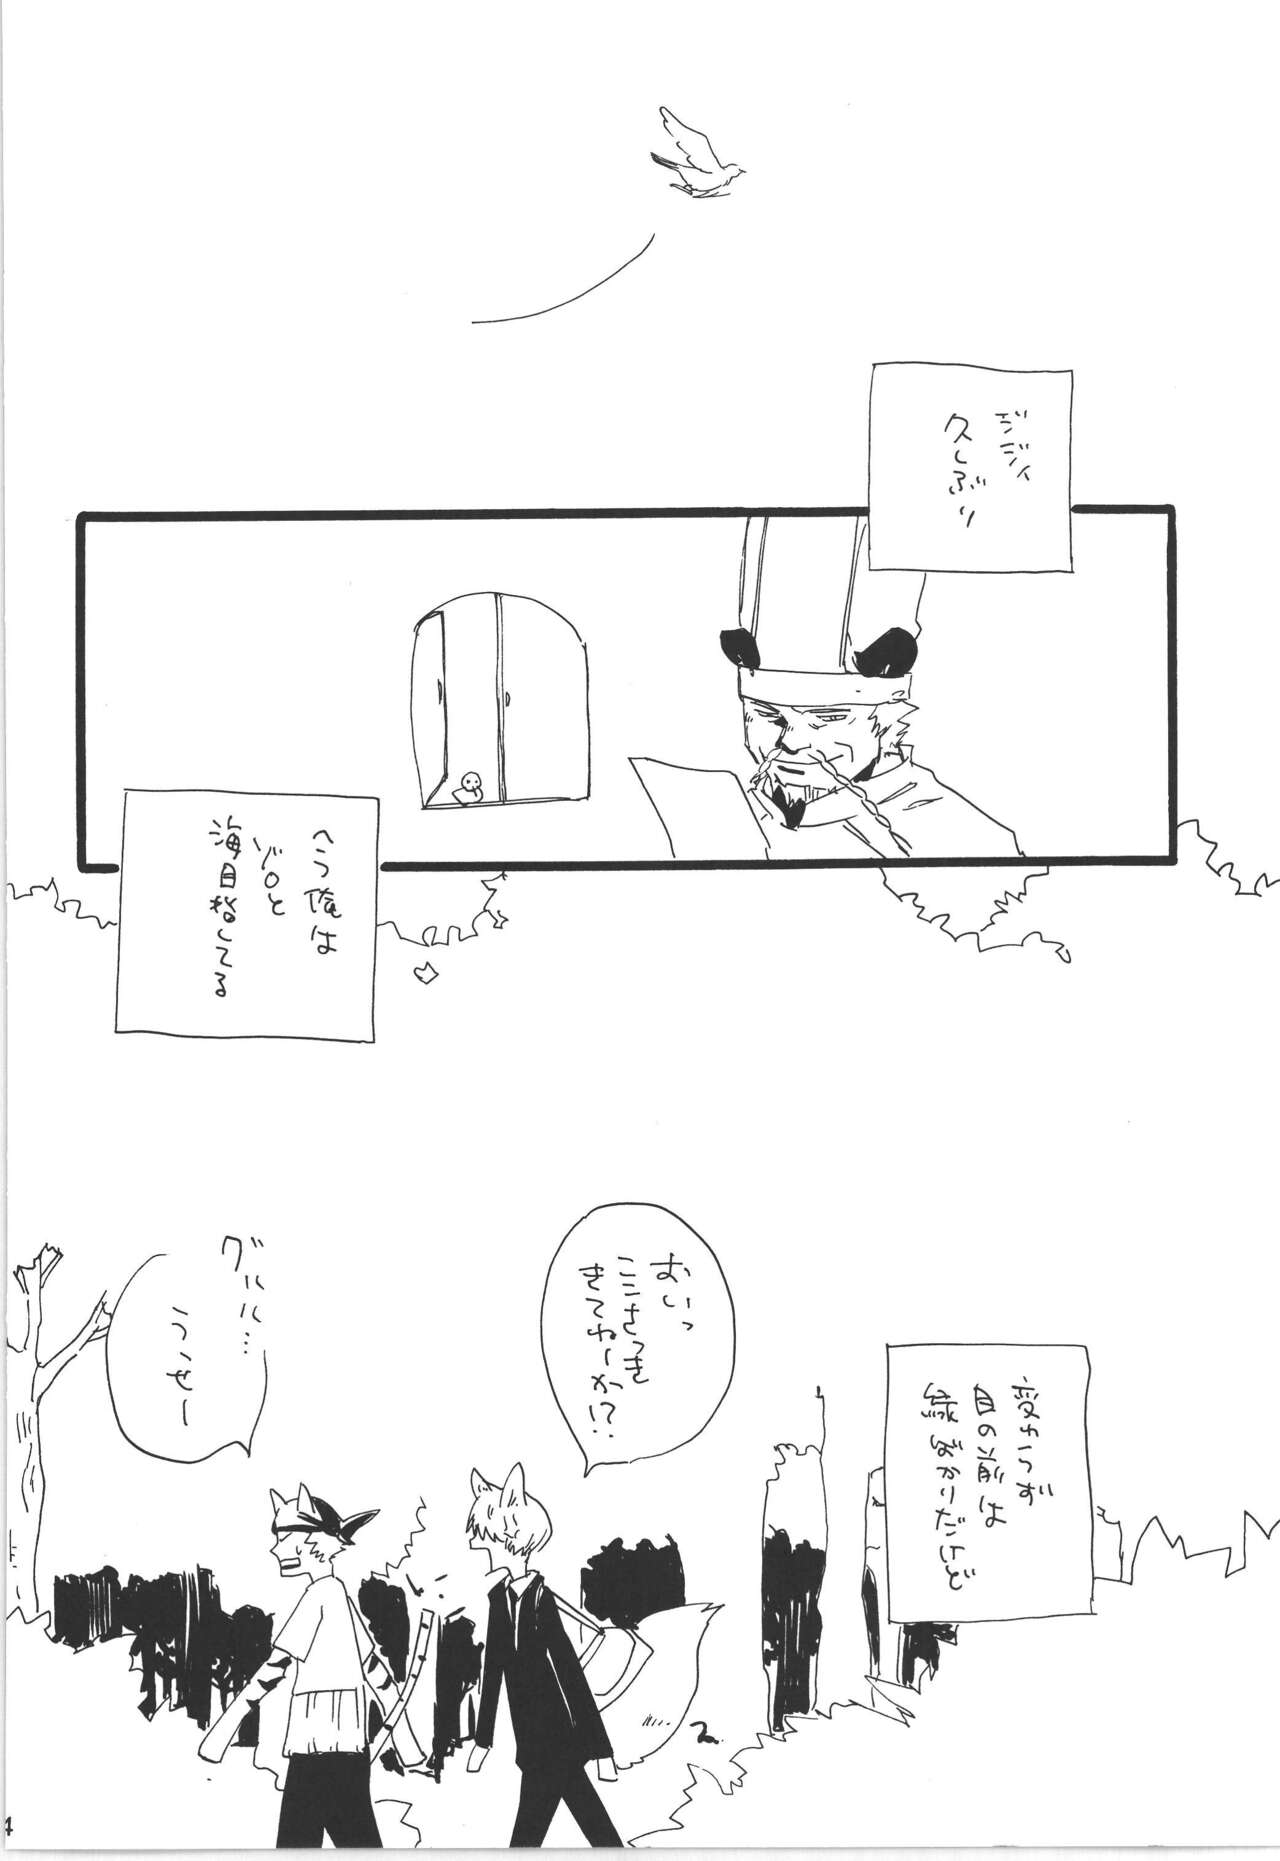 ジジイ
久しぶり
今俺は
ゾロと
海目指してる
変わらず
目の前は
緑ばかりだけど
おいっ
ここさっき
きてねーか!?
グルル…
うっせー
4